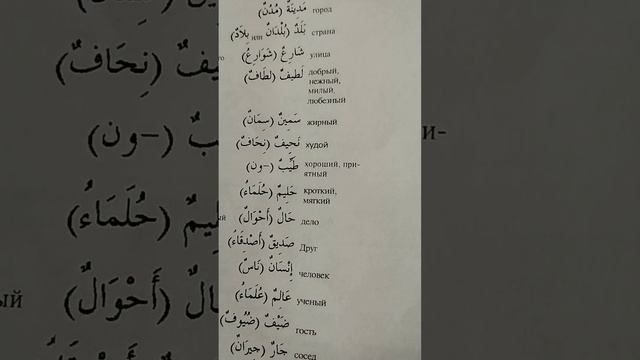 مَدِينَةٌ (مُدُنٌ) город
بَلَدٌ (بُلْدَانٌ или بِلَادٌ) страна
شَارِعٌ (شَوَارِعُ) улица
لَطِيفٌ (لِطَافٌ) добрый,
нежный,
милый,
любезный
سَمِينٌ (سِمَانٌ) жирный
نَحِيفٌ (نِحَافٌ) худой
طَيِّبٌ (–ون) хороший, при-
ятный
حَلِيمٌ (حُلَمَاءُ) кроткий,
мягкий
حَالٌ (أَحْوَالٌ) дело
صَدِيقٌ (أَصْدِقَاءُ) Друг
إِنْسَانٌ (نَاسٌ) человек
عَالِمٌ (عُلَمَاءُ) ученый
ضَيْفٌ (ضُيُوفٌ) гость
جَارٌ (جِيرَانٌ) сосед